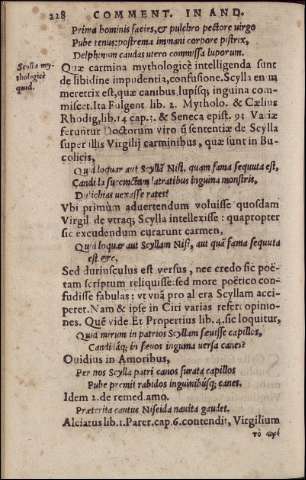 228 COMMENT. IN AND.
Prima hominis facies, & pulchro pectore virgo
Pube tenus; postrema immani corpore pistrix,
Delphinum caudas utero commissa luporum.
Scylla my-
thologicè
quid.
Quæ carmina mythologicè intelligenda sunt
de libidine impudentia, confusione. Scylla en im
meretrix est, quæ canibus, lupisq; inguina com-
miscet. Ita Fulgent lib. 2. Mytholo. & Cælius
Rhodig, lib. 14 cap. 3. & Seneca epist. 92 Variæ
feruntur Doctorum viro ũ sententiæ de Scylla
super illis Virgilij carminibus, quæ sunt in Bu-
colicis,
Quid loquar aut Scyllã Nisi, quam fama sequuta est,
Candida succinctam latratibus inguina monstris,
Dulichias vexasse rates?
Vbi primum aduertendum voluisse quosdam
Virgil de vtraq; Scylla intellexisse: quapropter
sic excudendum curarunt carmen,
Quid loquar aut Scyllam Nisi, aut quã fama sequuta
est &c,
Sed duriusculus est versus, nec credo sic poë-
tam scriptum reliquisse: sed more poëtico con-
fudisse fabulas: vt vnã pro al era Scyllam acci-
peret. Nam & ipse in Ciri varias refert opinio-
nes. Quẽ vide Et Propertius lib. 4. sic loquitur,
Quid mirum in patrios Scyllam sæuisse capillos,
Candidaq; in sæuos inguina versa canes?
Ouidius in Amoribus,
Per nos Scylla patri canos furata capillos
Pube premit rabidos inguinibusq; canes.
Idem 2. de remed. amo.
Præterita cautus Niseida nauita gaudet.
Alciatus lib. 1. Parer. cap. 6. contendit, Virgilium